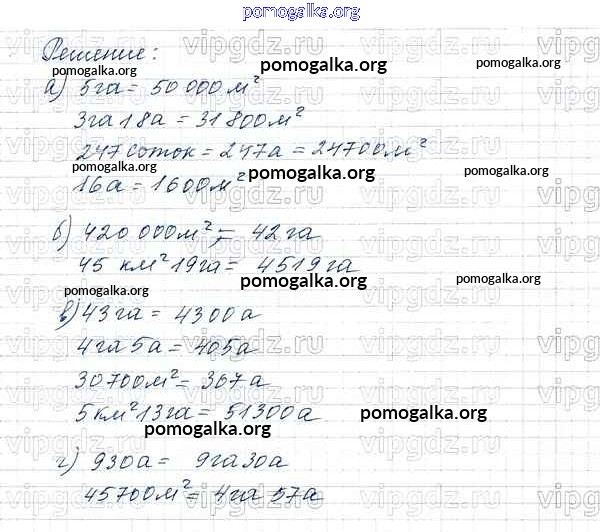 pomogalka.org
Решение:
pomogalka.org pomogalka.org
а) 5га = 50 000 м²
3га 18а = 31 800 м²
247 соток = 247а = 24700м²
pomogalka.org pomogalka.org
16а = 1600м²
б) 420 000м² = 42 га
45 км² 19га = 4519 га
pomogalka.org pomogalka.org pomogalka.org
в) 43га = 4300а
4га 5а = 405а
30700м² = 367а
5км² 13га = 51300а
pomogalka.org pomogalka.org
г) 930а = 9га 30а
45700м² = 4га 57а